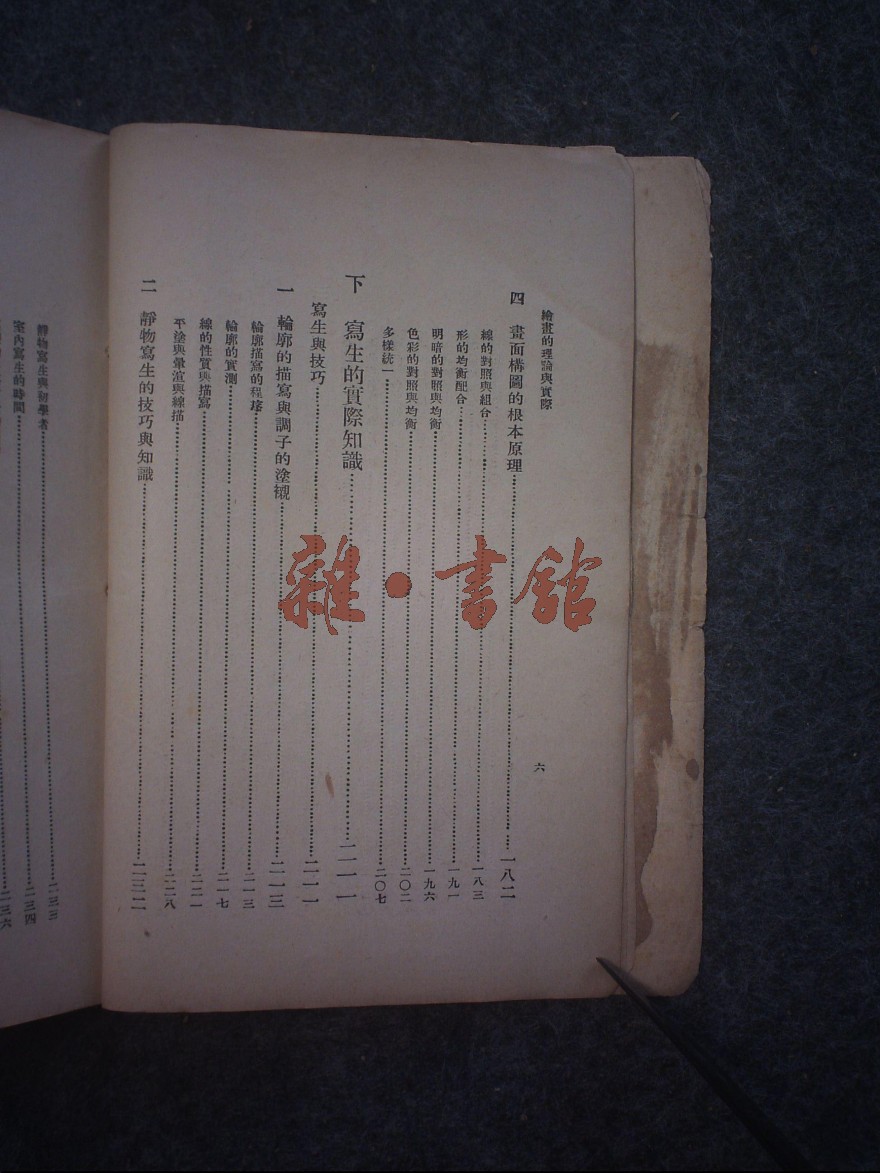 繪畫的理論與實際
六
四 畫面構圖的根本原理 一八二
線的對照與組合 一八三
形的均衡配合 一九一
明暗的對照與均衡 一九六
色彩的對照與均衡 二〇二
多樣統一 二〇七
下 寫生的實際知識 二一一
寫生與技巧 二一一
一 輪廓的描寫與調子的塗襯 二一三
輪廓描寫的程序 二一三
輪廓的實測 二一七
線的性質與描寫 二二一
平塗與暈渲與線描 二二八
二 靜物寫生的技巧與知識 二三二
靜物寫生與初學者 二三三
室內寫生的時間 二三四
二三六
雜·書館